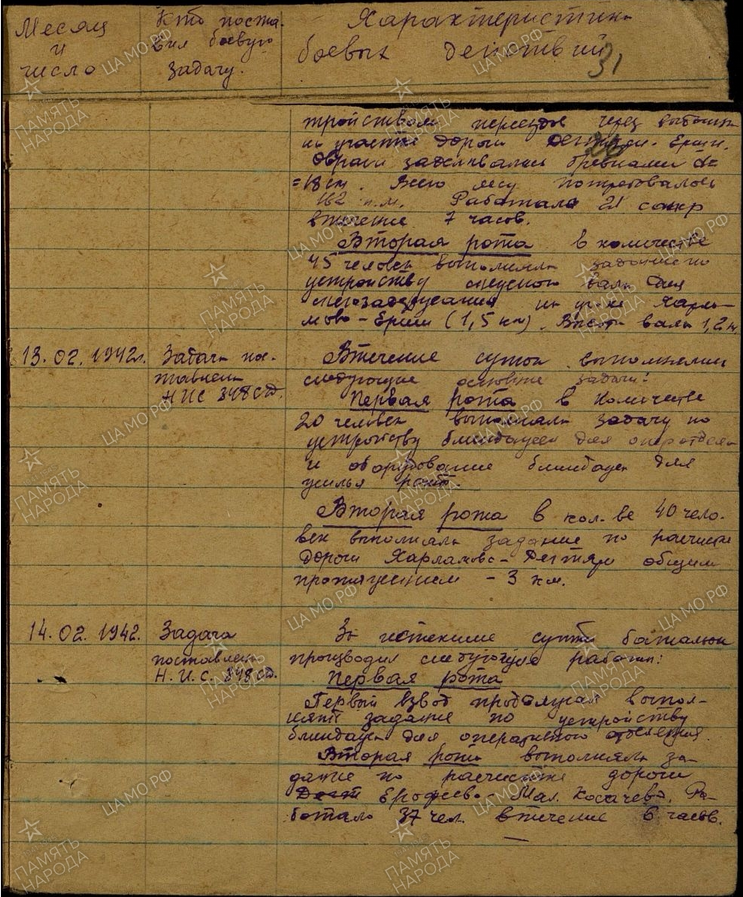 Месяц
и
число
Кто поста-
вил боевую
задачу.
Характеристика
боевых действий
31
тройством переездов через
на участке дороги Дегтяри - Ерши.
Овраги заделывались бревнами d=
=18 см. Всего лесу потребовалось
162 п.м. Работало 21 сапер
втечение 7 часов.
Вторая рота в количестве
45 человек выполняла задание по
устройству снежного вала для
снегозадержания на уч-ке Харла-
мово - Ерши (1,5 км). Высота вала 1,2 м.
13.02.1942г.
Задача по-
ставлена
НИС 348 сд.
Втечение суток выполнялись
следующие основные задачи:
Первая рота в количестве
20 человек выполняла задачу по
устройству блиндажей для оперотделен
и оборудование блиндажей для
жилья роты.
Вторая рота в кол-ве 40 чело-
век выполняла задание по расчистке
дороги Харламово - Дегтяри общим
протяжением - 3 км.
14.02.1942.
Задача
поставлена
Н.И.С. 348 сд.
За истекшие сутки батальон
производил следующую работы:
Первая рота
Первый взвод продолжал выпол-
нять задание по устройству
блиндажей для оперативного отделения.
Вторая рота выполняла за-
дание по расчистке дороги
Ерофеево - Мал. Косачево. Ра-
ботало 37 чел. втечение 6 часов.
ПАМЯТЬ НАРОДА
ЦА МО РФ